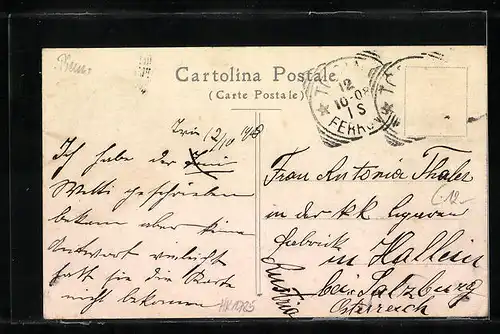 Cartolina Postale
(Carte Postale)
12
10-08
S
FERROV
12/10 1908
Ich habe der
Wetti geschrieben
bekam aber keine
Antwort vieleicht
hatt sie die Karte
nicht bekommen
Frau Antonia Thaler
in der k k Cigarren
Fabrick
in Hallein
bei Salzburg
Österreich
Austria
(-12-